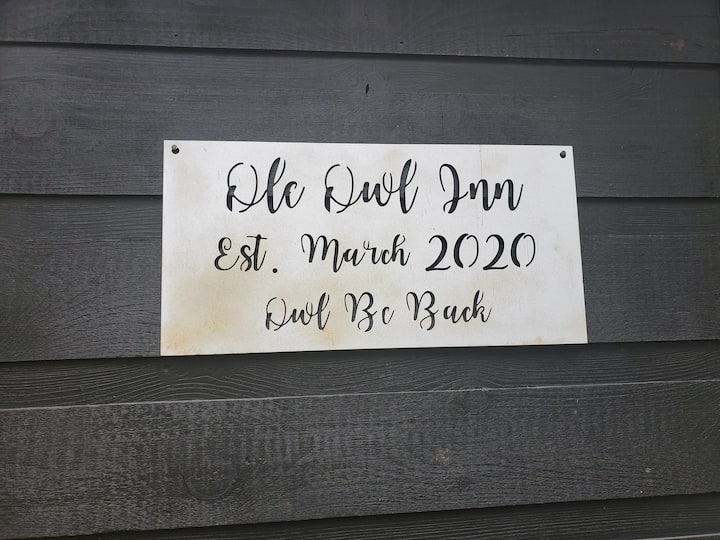 Ole Owl Inn
Est. March 2020
Owl Be Back